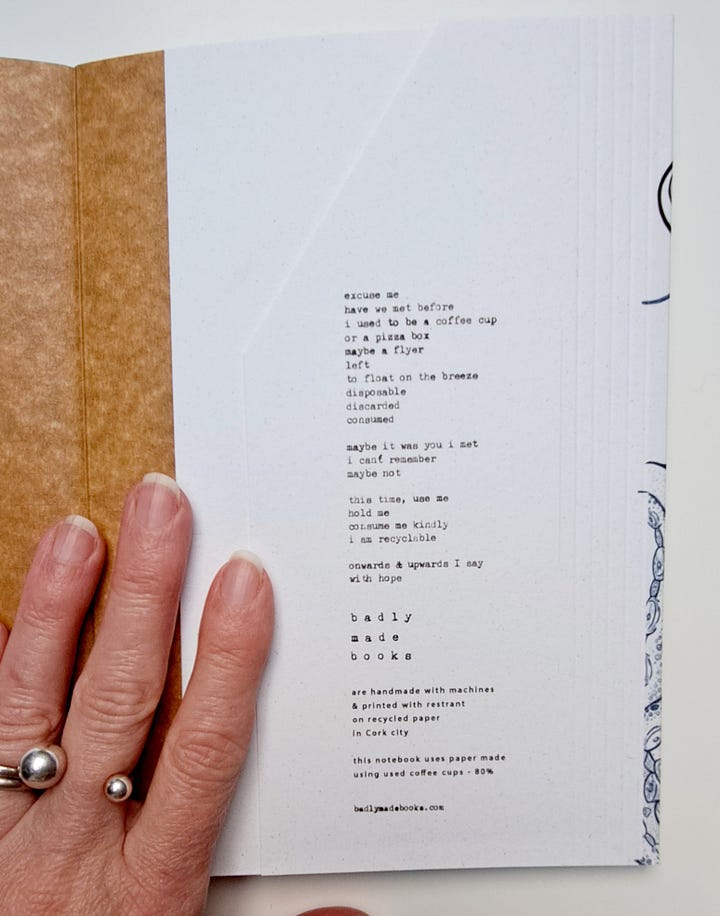 excuse me
have we met before
i used to be a coffee cup
or a pizza box
maybe a flyer
left
to float on the breeze
disposable
discarded
consumed
maybe it was you i met
i cant remember
maybe not
this time, use me
hold me
consume me kindly
i am recyclable
onwards & upwards I say
with hope
badly
made
books
are handmade with machines
& printed with restrant
on recycled paper
in Cork city
this notebook uses paper made
using used coffee cups - 80%
badlymadebooks.com